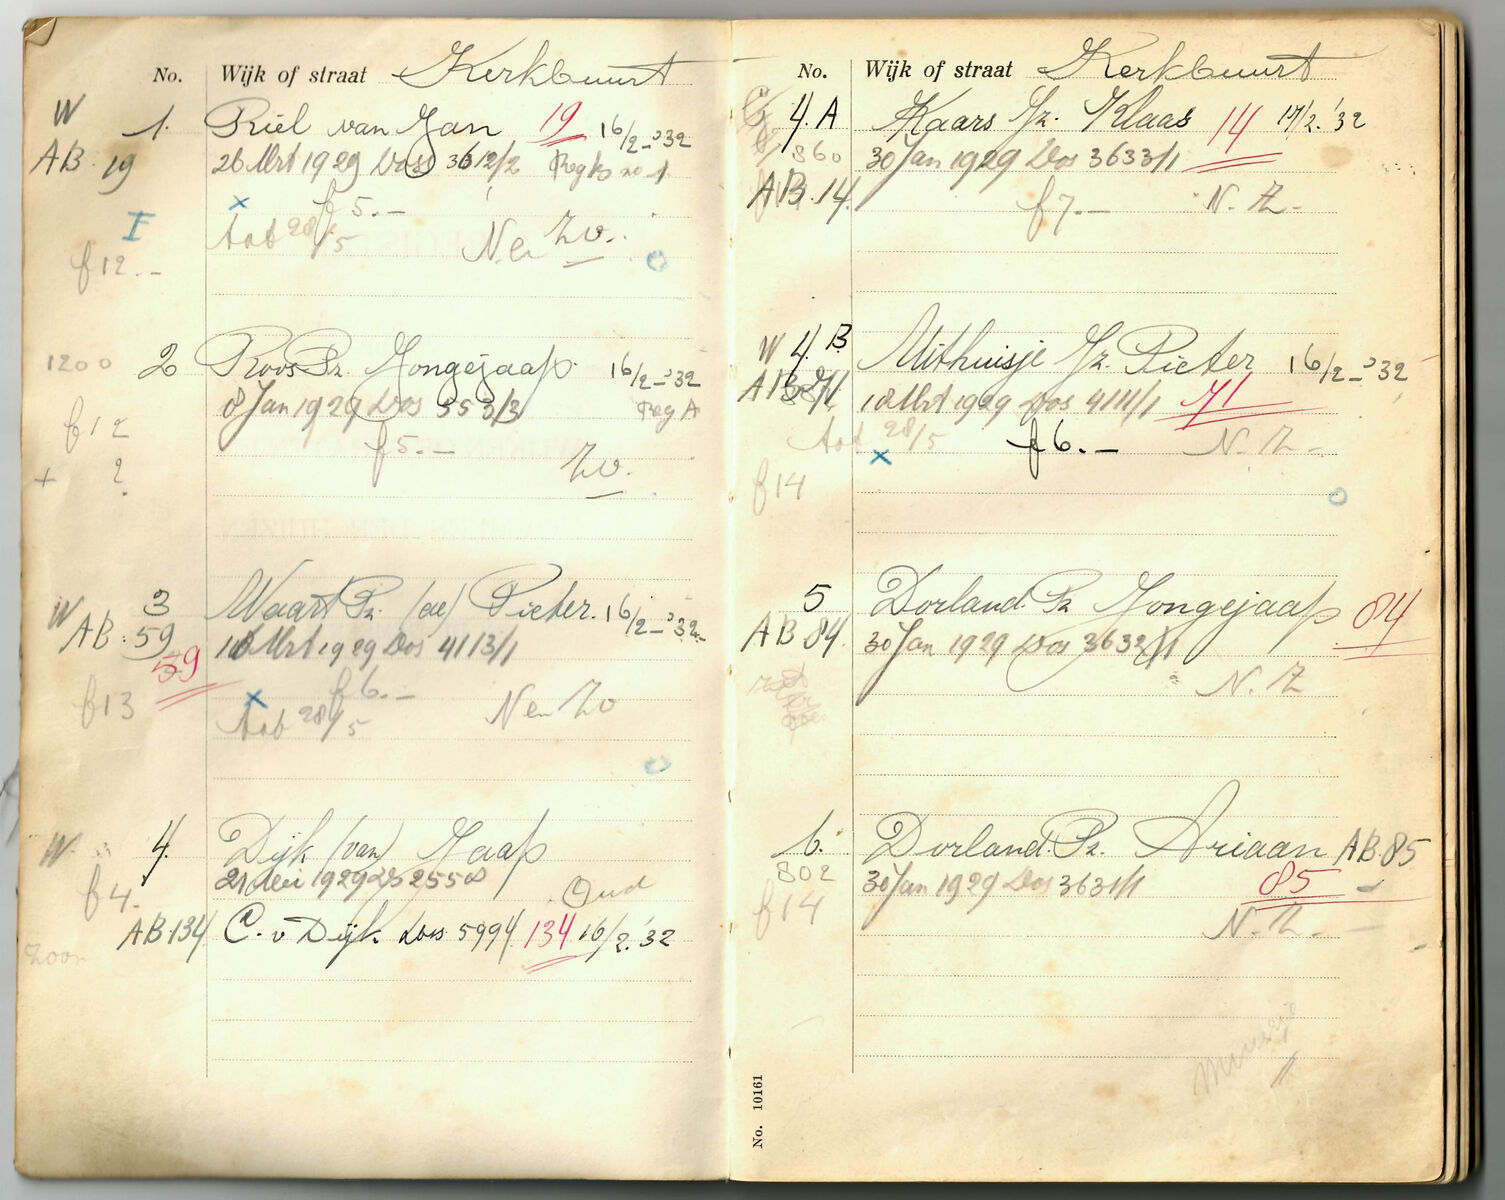 No. Wijk of straat Kerkbuurt
W
1. Riel van Jan 19 16/2-'32
AB. 19 26 Mrt 1929 Dos 3612/2 Reg B no 1
x f 5.-
I tot 28/5 N en ZW.
f 12.-
1200 2 Roos Pz. Jongejaap. 16/2-'32
8 Jan 1929 Dos 553/3 Reg A
f 12 f 5.-
+ ? ZW.
W 3 Waart Pz. (de) Pieter. 16/2-'32
AB. 59 18 Mrt 1929 Dos 4113/1
59
f 13 x f 6.- N en ZO
tot 28/5
W 4. Dijk (van) Jaap
f 4. 21 Mei 1929 Oud
AB 134 C. v Dijk Dos 5994 134 16/2.'32
zoon
No. Wijk of straat Kerkbuurt
4. A Kaars Jz. Klaas 14 17/2.'32
860 30 Jan 1929 Dos 3633/1
AB. 14. f 7.- N.-Z.-
W 4. B Uithuisje Jz. Pieter 16/2-'32
AB 71 18 Mrt 1929 Dos 4111/1 71
tot 28/5 x f 6.- N.-Z.-
f 14
5 Dorland. Pz Jongejaap 84
AB 84. 30 Jan 1929 Dos 3632/1
N. Z
6. Dorland. Pz. Ariaan AB. 85
802 30 Jan 1929 Dos 3631/1 85
f 14 N.-Z.-
No. 10161